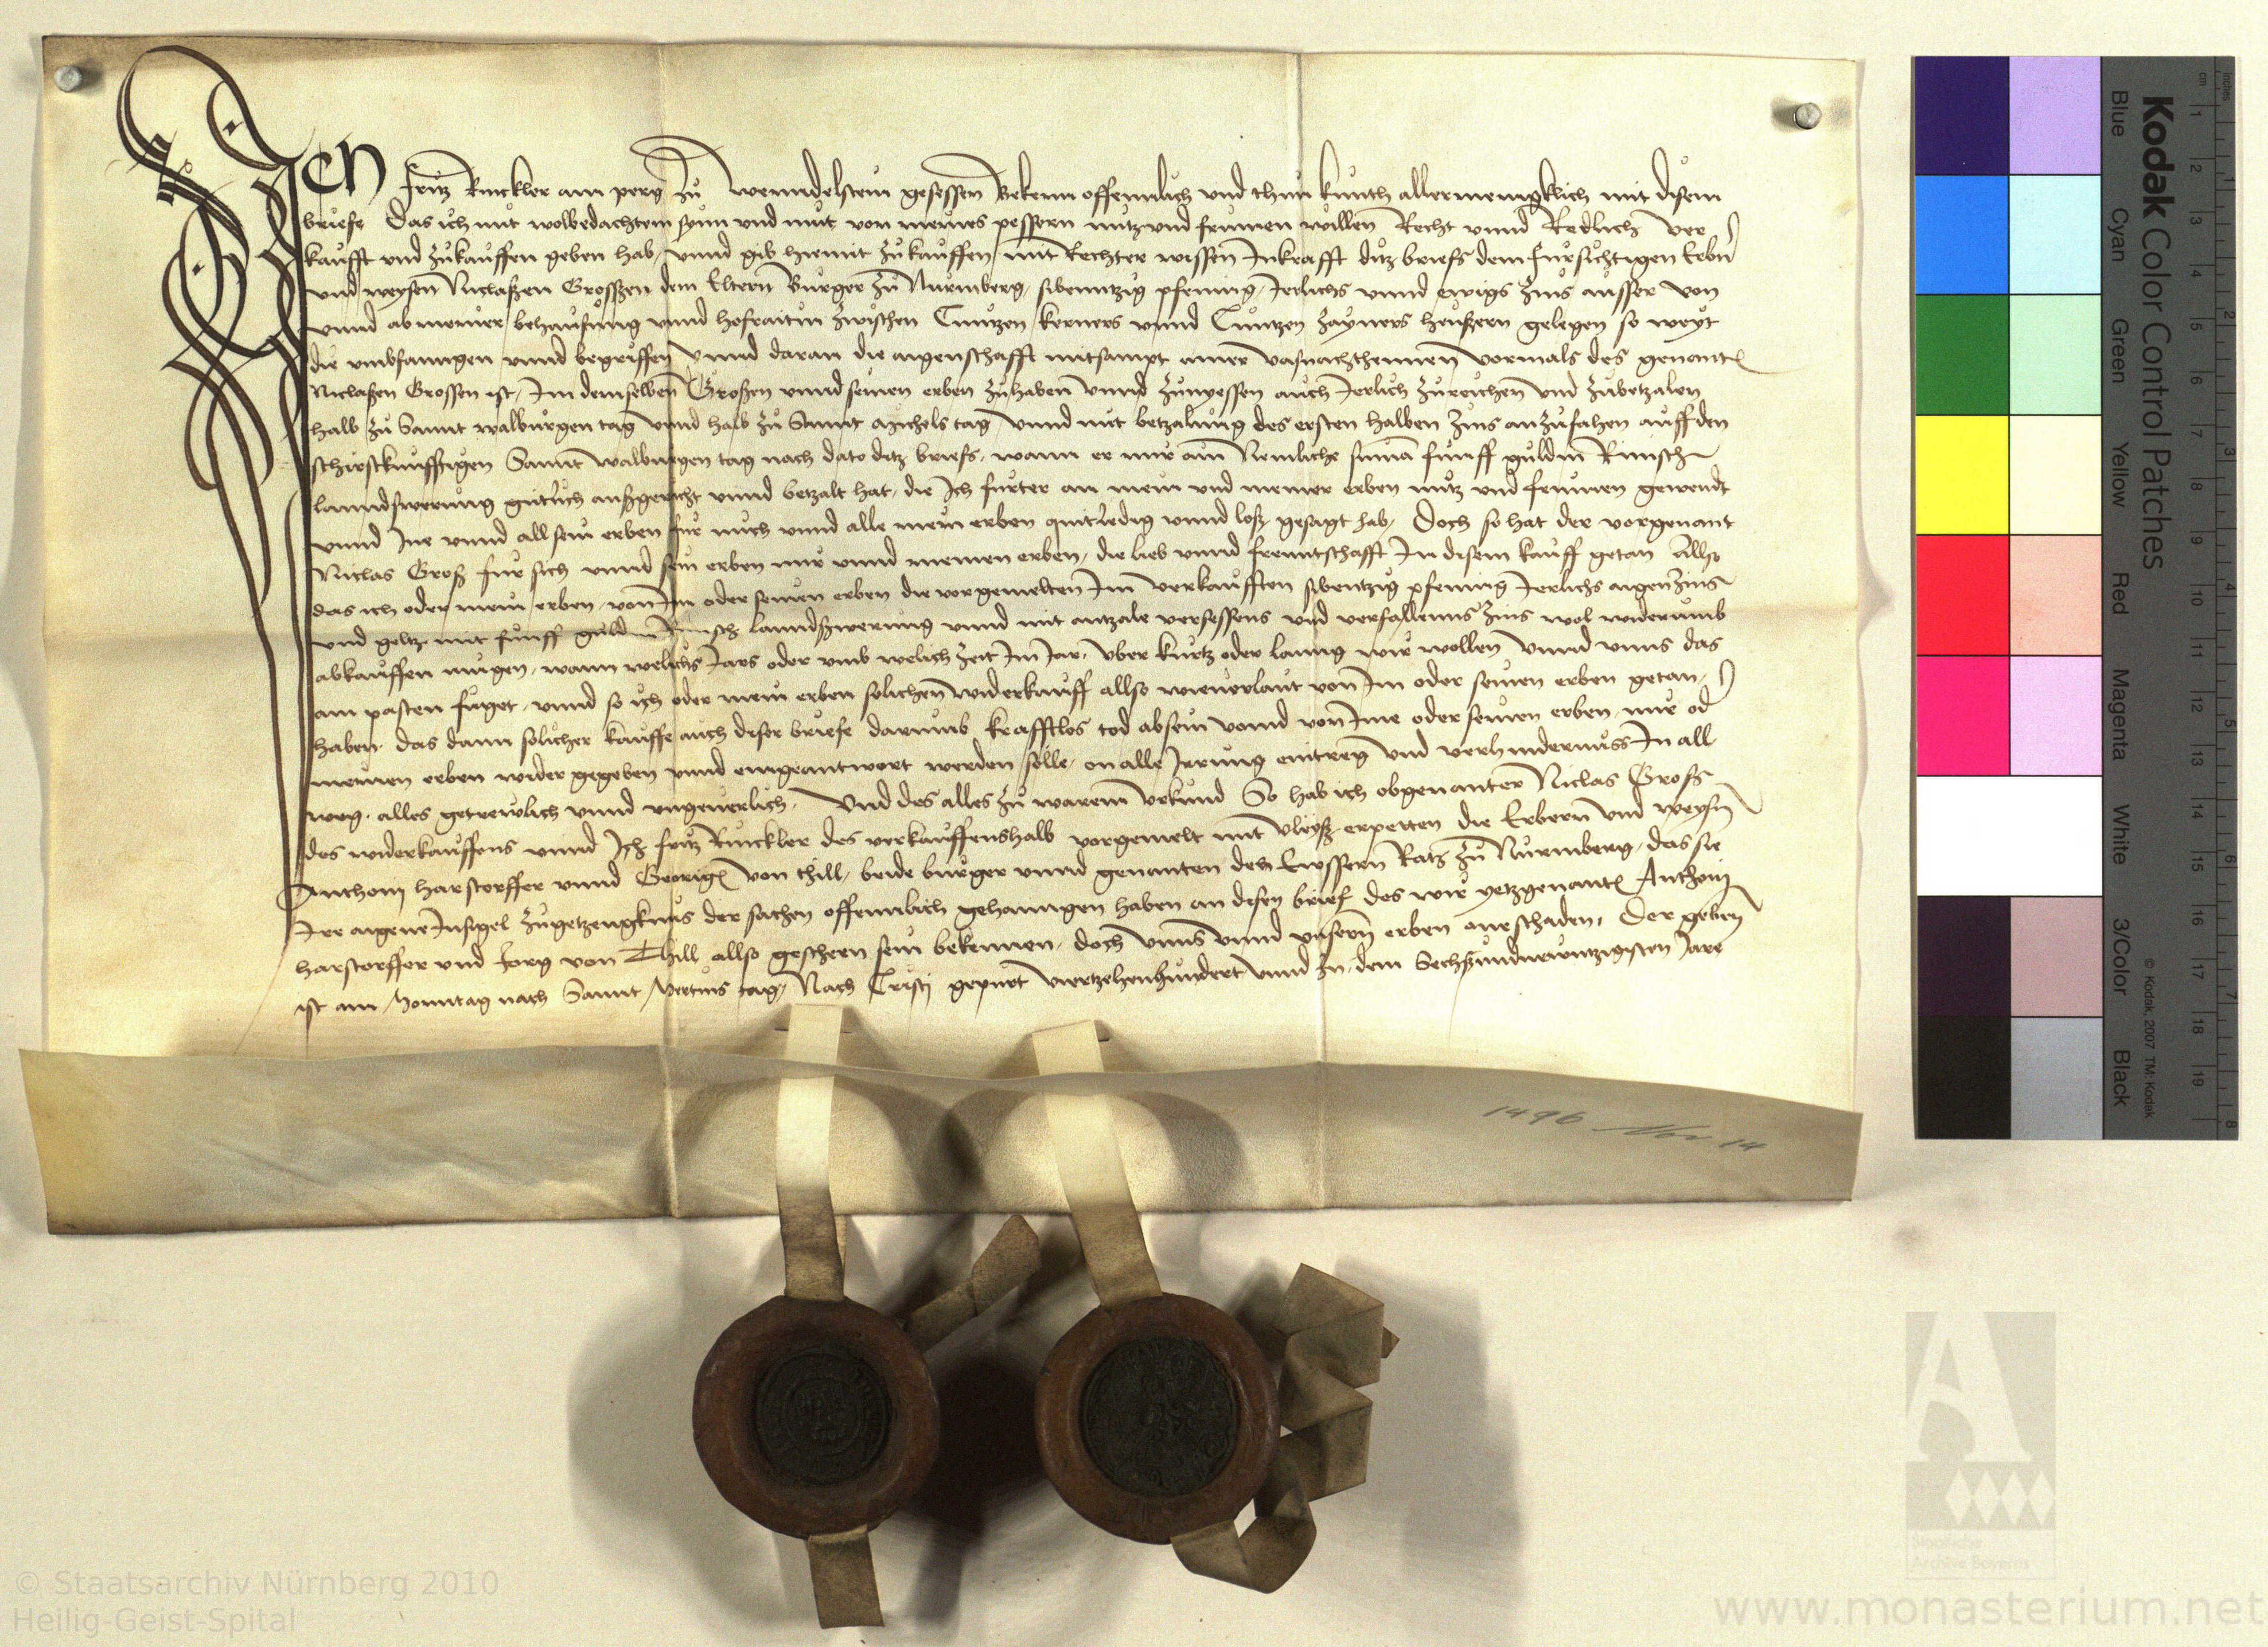 Ich Fritz Rinckler am perg zu Wenndelstein gesessen Bekenn offennlich vnd thun kunth allermenigklich mit disem
briefe Das ich mit wolbedachtem synn vnd mut von meines pessern nutz vnd frumen willen Recht vnnd Redlich ver
kaufft vnd zukauffen geben hab, vnnd gib hiemit zukauffen mit Rechter wissen Inkrafft ditz briefs dem fursichtigen Erbn
vnd weysen Niclaßen Großen dem Eltern Burger zu Nuremberg, sibenntzig pfening, Jerlichs vnnd ewigs zins ausser von
vnnd ab meiner behausung vnnd hofraitin zwischen Cuntzen kerners vnnd Cuntzen zayners heußern gelegen so weyt
die vmbfanngen vnnd begriffen vnnd daran die aigenschafft mitsampt ainer vasnachthennen vormals des genante
Niclaßen Grossen ist, Im demselben Großen vnnd seinen erben zuhaben vnnd zunyessen auch Jerlich zureichen vnd zubetzalen
halb zu Sannt walburgen tag vnnd halb zu Sannt Michels tag vnnd mit betzalung des ersten halben zins anzufahen auff den
schirstkunfftigen Sannt walburgen tag nach dato ditz briefs, wann er mir ain Nemliche suma funff guldin Rinisch
lanndßwerung gutlich außgericht vnnd betzalt hat, die Ich furter an mein vnd meiner erben nutz vnd frumen gewendt
vnnd Ine vnnd all sein erben fur mich vnnd alle mein erben quit ledig vnnd loß gesagt hab, Doch so hat der vorgenant
Niclas Groß fur sich vnnd sein erben mir vnnd meinen erben, die lieb vnnd freuntschafft In disem kauff getan Allso
das ich oder mein erben, von Im oder seinen erben die vorgemelten Im verkaufften sibentzig pfening Jerlichs aigenzins
vnd geltz mit funff guldin Rinisch lanndßwerung vnnd mit antzale versessens vnd verfallenns zins wol widerumb
abkauffen mugen, wann welichs Jars oder vmb welich zeit Im Jar, vber kurtz oder lanng wir wollen vnnd vnns das
am pasten fuget, vnnd so ich oder mein erben solichen widerkauff allso wieuorlaut von Im oder seinen erben getan
haben das dann solicher kauffe auch diser briefe darumb krafftlos tod absein vnnd von Ime oder seinen erben, mir od
meinen erben wider gegeben vnnd eingeantwort werden solle, on alle Irrung eintreg vnd verhindernuss In all
weg, alles getrewlich vnnd vngeuerlich, Vnd des alles zu warem vrkund So hab ich obgenanter Niclas Groß
des widerkauffens vnnd Ich fritz Rinckler des verkauffenshalb vorgemelt mit vleyß erpetten die Erbern vnd weysn
Anthonj Harstorffer vnnd Georige von thill, beide burger vnnd genanten des Eussern Rats zu Nuremberg, das sie
Ire aigene Insigel zugetzeugknus der sachen offennlich gehanngen haben an disen brief des wir yetzgenante Anthonj
harstorffer vnd Jorg von Thill allso geschern sein bekennen, doch vnns vnnd vnsern erben one schaden, Der geben
ist am Monntag nach Sannt Mertins tag, Nach Cristj gepurt viertzehenhundert vnnd In dem Sechßundnewntzigisten Jare
1496 Nov. 14
Kodak Color Control Patches
Blue Cyan Green Yellow Red Magenta White 3/Color Black
© Kodak, 2007 TM: Kodak
inches 1 2 3 4 5 6 7 8
cm 1 2 3 4 5 6 7 8 9 10 11 12 13 14 15 16 17 18 19
Staatliche
Archive Bayerns
© Staatsarchiv Nürnberg 2010
Heilig-Geist-Spital
www.monasterium.net